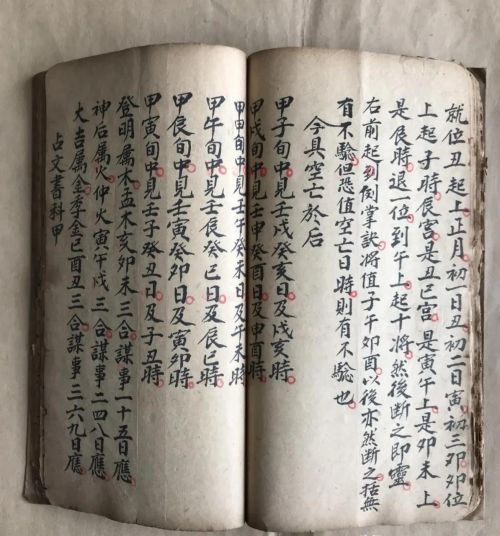 就位丑起上正月初一日丑初二日寅初三卯卯位
上起子時辰宮是丑巳宮是寅午上是卯未上
是辰時退一位到午上起十將然後断之即靈
右前起到倒掌訣將值子午卯酉以後亦然断之括無
有不驗但恐值空亡日時則有不驗也
今具空亡於后
甲子旬中見壬戌癸亥日及戌亥時
甲戌旬中見壬申癸酉日及申酉時
甲申旬中見壬午癸未日及午未時
甲午旬中見壬辰癸巳日及辰巳時
甲辰旬中見壬寅癸卯日及寅卯時
甲寅旬中見壬子癸丑日及子丑時
登明屬木孟木亥卯未三合謀事一十五日應
神后屬火仲火寅午戌三合謀事二四八日應
大吉屬金季金巳酉丑三合謀事三六九日應
占文書科甲